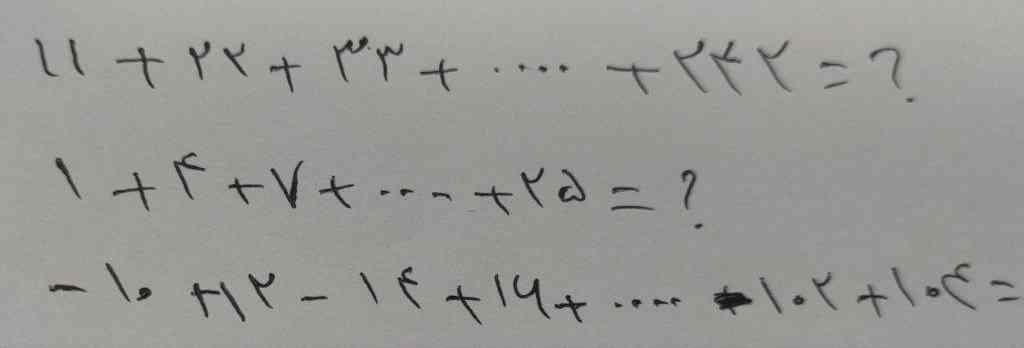 ۱۱ + ۲۲ + ۳۳ + .... + ۲۴۲ = ?
۱ + ۴ + ۷ + .... + ۲۵ = ?
- ۱۰ + ۱۲ - ۱۴ + ۱۶ + .... - ۱۰۲ + ۱۰۴ =